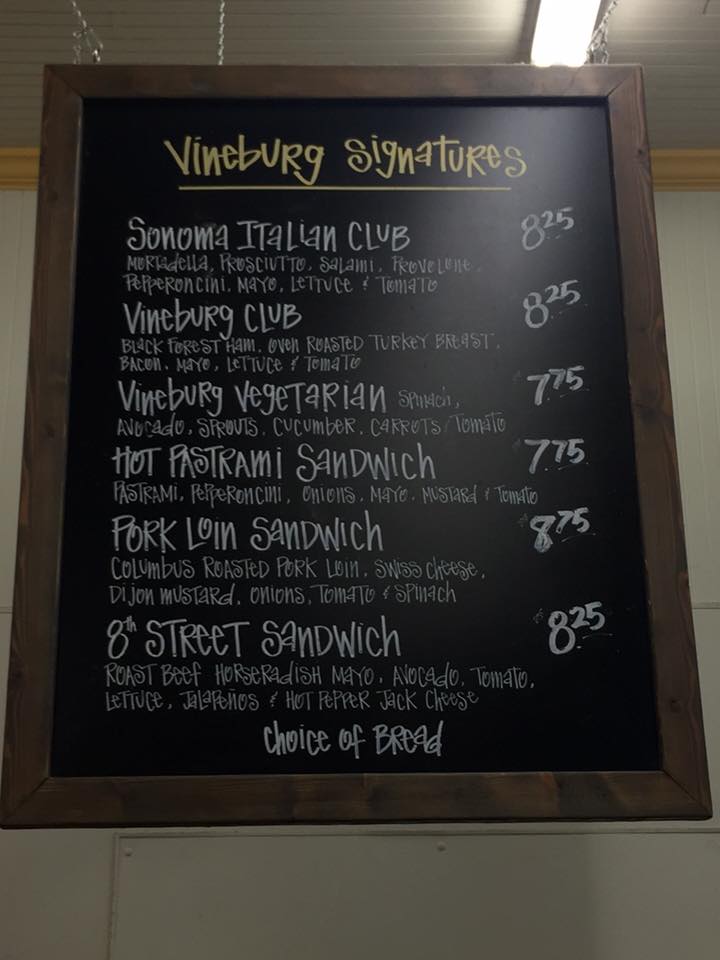 Vineburg Signatures
Sonoma Italian Club 8.25
Mortadella, Prosciutto, Salami, Provolone,
Pepperoncini, Mayo, Lettuce & Tomato
Vineburg Club 8.25
Black Forest Ham, Oven Roasted Turkey Breast,
Bacon, Mayo, Lettuce & Tomato
Vineburg Vegetarian Spinach, 7.75
Avocado, Sprouts, Cucumber, Carrots, Tomato
Hot Pastrami Sandwich 7.75
Pastrami, Pepperoncini, Onions, Mayo, Mustard & Tomato
Pork Loin Sandwich 8.75
Columbus Roasted Pork Loin, Swiss Cheese,
Dijon Mustard, Onions, Tomato & Spinach
8th Street Sandwich 8.25
Roast Beef Horseradish Mayo, Avocado, Tomato,
Lettuce, Jalapeños & Hot Pepper Jack Cheese
Choice of Bread